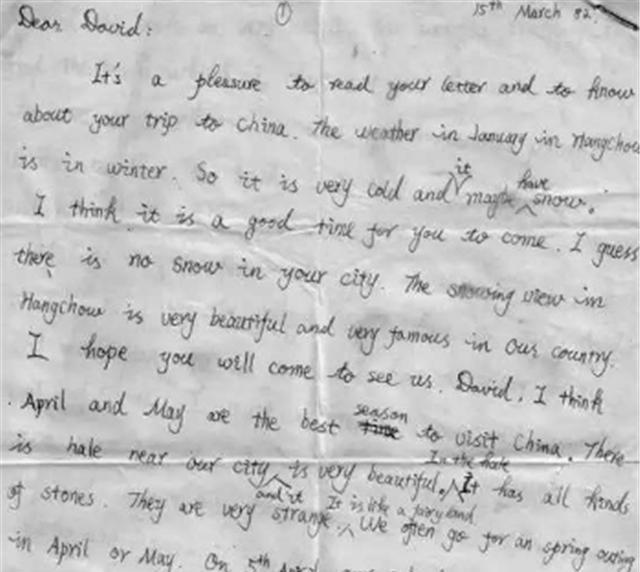 ① 15th March 82.
Dear David:
It's a pleasure to read your letter and to know
about your trip to China. The weather in January in Hangchou
is in winter. So it is very cold and it maybe have snow.
I think it is a good time for you to come. I guess
there is no snow in your city. The snowing view in
Hangchow is very beautiful and very famous in our country.
I hope you will come to see us. David, I think
April and May are the best season to visit China. There
is hale near our city and it is very beautiful. In the hale It has all kinds
of stones. They are very strange. It is like a fairy land. We often go for an spring outing
in April or May. On 5th April